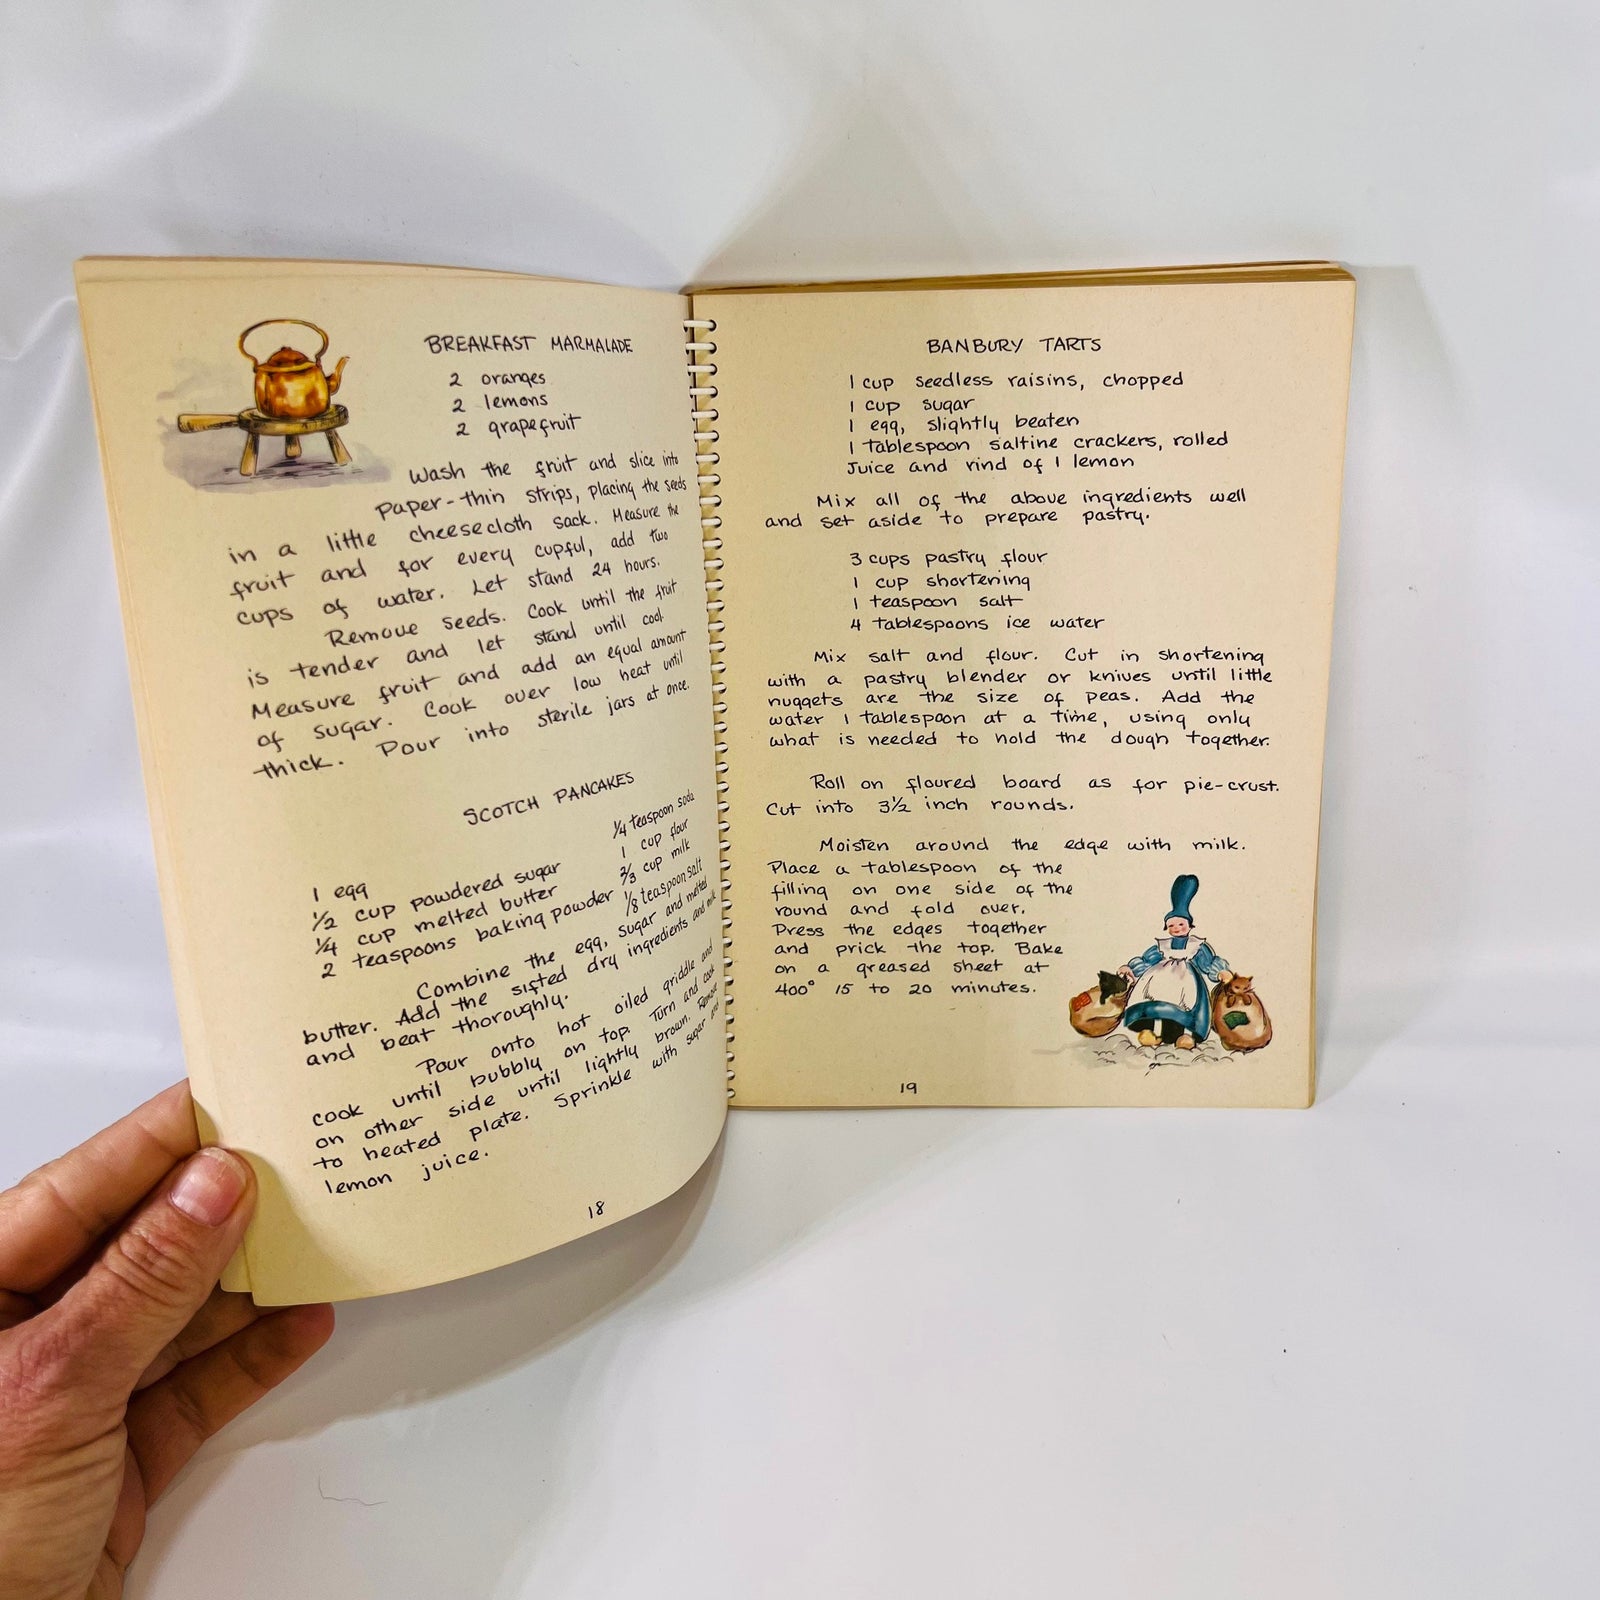 BREAKFAST MARMALADE
2 oranges
2 lemons
2 grapefruit
Wash the fruit and slice into
paper-thin strips, placing the seeds
in a little cheesecloth sack. Measure the
fruit and for every cupful, add two
cups of water. Let stand 24 hours.
Remove seeds. Cook until the fruit
is tender and let stand until cool.
Measure fruit and add an equal amount
of sugar. Cook over low heat until
thick. Pour into sterile jars at once.
SCOTCH PANCAKES
1 egg
1/2 cup powdered sugar
1/4 cup melted butter
2 teaspoons baking powder
1/4 teaspoon soda
1 cup flour
2/3 cup milk
1/8 teaspoon salt
Combine the egg, sugar and melted
butter. Add the sifted dry ingredients and milk
and beat thoroughly.
Pour onto hot oiled griddle and
cook until bubbly on top. Turn and cook
on other side until lightly brown. Remove
to heated plate. Sprinkle with sugar and
lemon juice.
18
BANBURY TARTS
1 cup seedless raisins, chopped
1 cup sugar
1 egg, slightly beaten
1 tablespoon saltine crackers, rolled
Juice and rind of 1 lemon
Mix all of the above ingredients well
and set aside to prepare pastry.
3 cups pastry flour
1 cup shortening
1 teaspoon salt
4 tablespoons ice water
Mix salt and flour. Cut in shortening
with a pastry blender or knives until little
nuggets are the size of peas. Add the
water 1 tablespoon at a time, using only
what is needed to hold the dough together.
Roll on floured board as for pie-crust.
Cut into 3 1/2 inch rounds.
Moisten around the edge with milk.
Place a tablespoon of the
filling on one side of the
round and fold over.
Press the edges together
and prick the top. Bake
on a greased sheet at
400° 15 to 20 minutes.
19